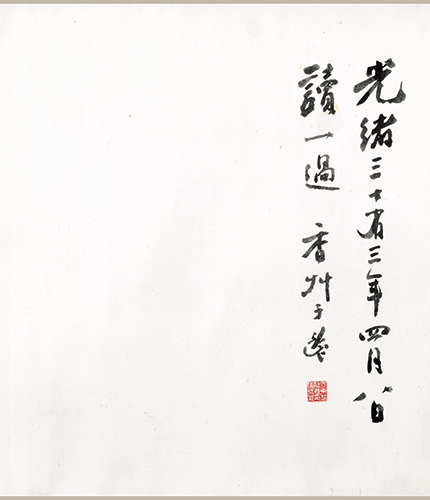 光緒三十有三年四月八日
讀一過 香艸于鬯